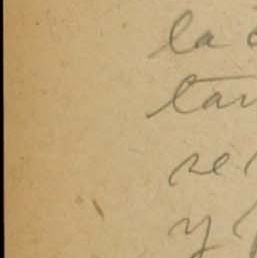 la
tan
se
y